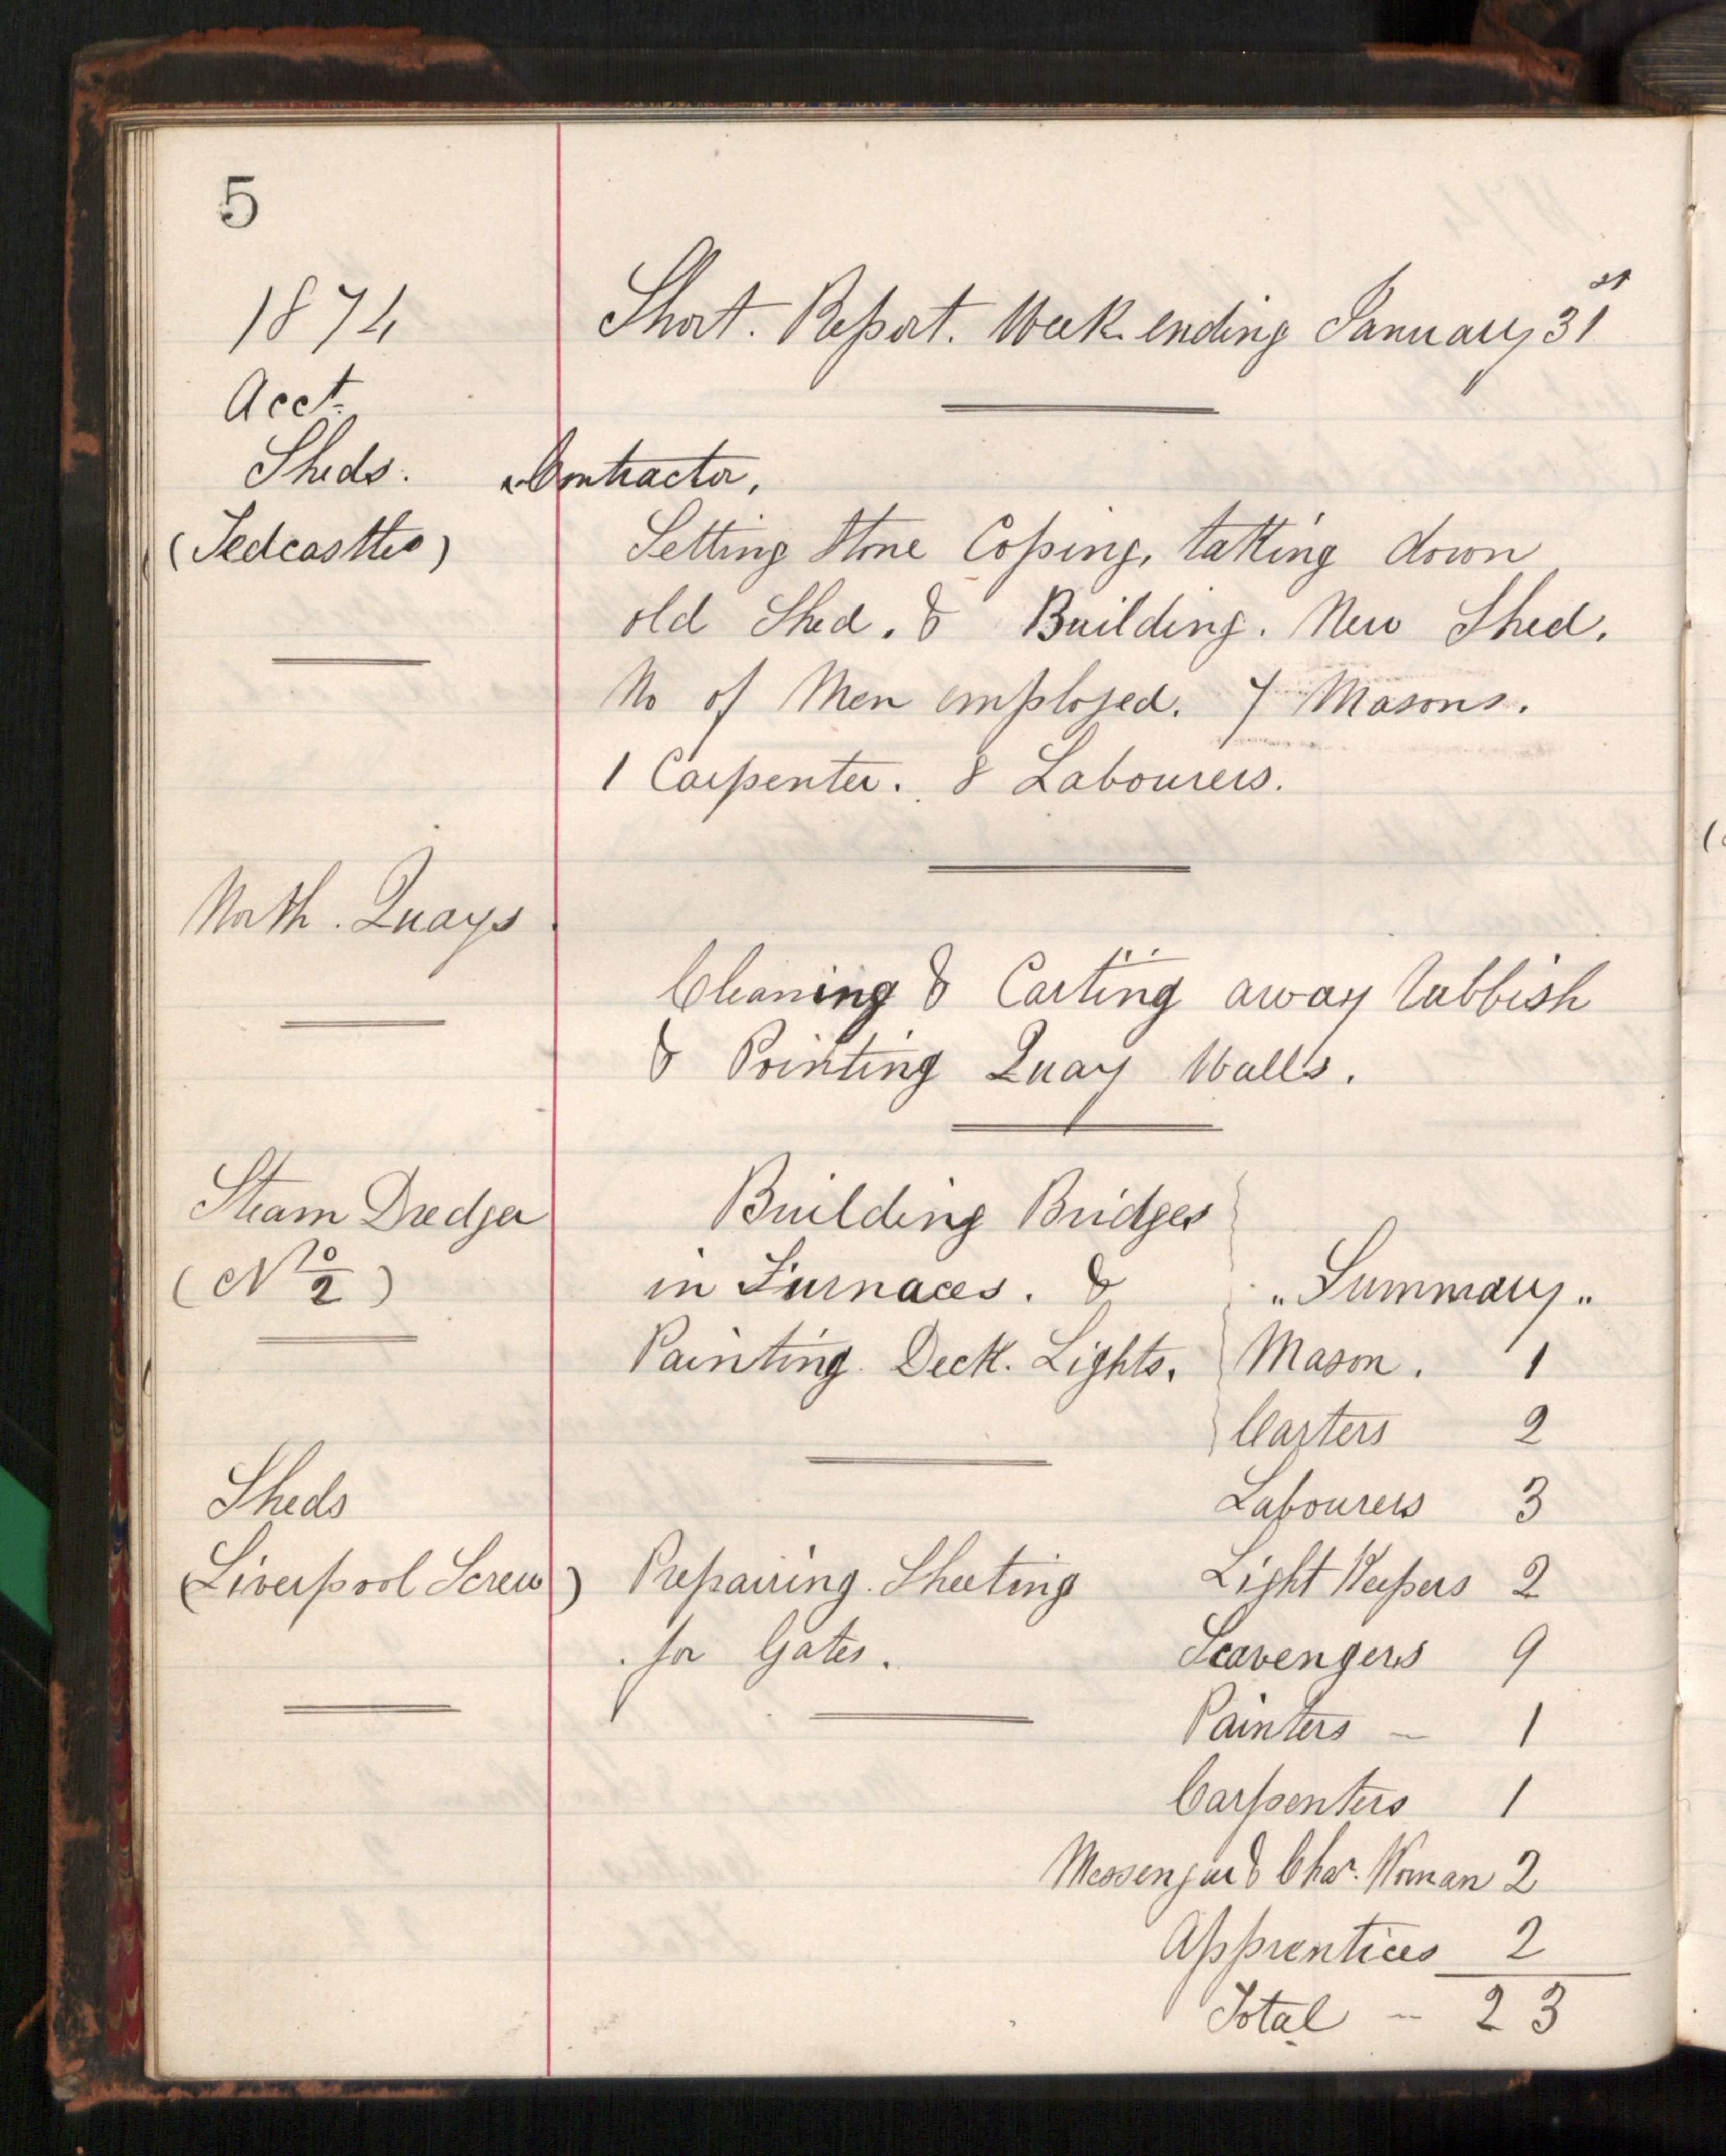 5
1874
Short. Report. Week ending January 31st
Acct.
Sheds. Contractor,
(Tedcastles)
Setting Stone Coping, taking down
old Shed. & Building. New Shed.
No of Men employed. 7 Masons.
1 Carpenter. 8 Labourers.
North. Quays
Cleaning & Carting away rubbish
& Pointing Quay Walls.
Steam Dredger
(No 2)
Building Bridges
in Furnaces. &
Painting. Deck. Lights.
Sheds
(Liverpool Screw)
Preparing. Sheeting
for Gates.
"Summary"
Mason. 1
Carters 2
Labourers 3
Light Keepers 2
Scavengers 9
Painters — 1
Carpenters 1
Messenger & Char. Woman 2
Apprentices 2
Total — 23